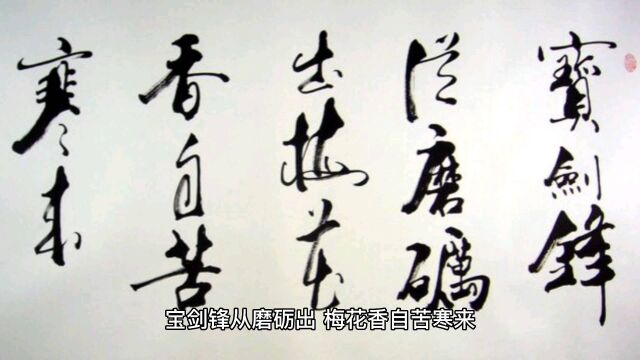 寶劍鋒
從磨礪
出梅花
香自苦
寒來
宝剑锋从磨砺出 梅花香自苦寒来